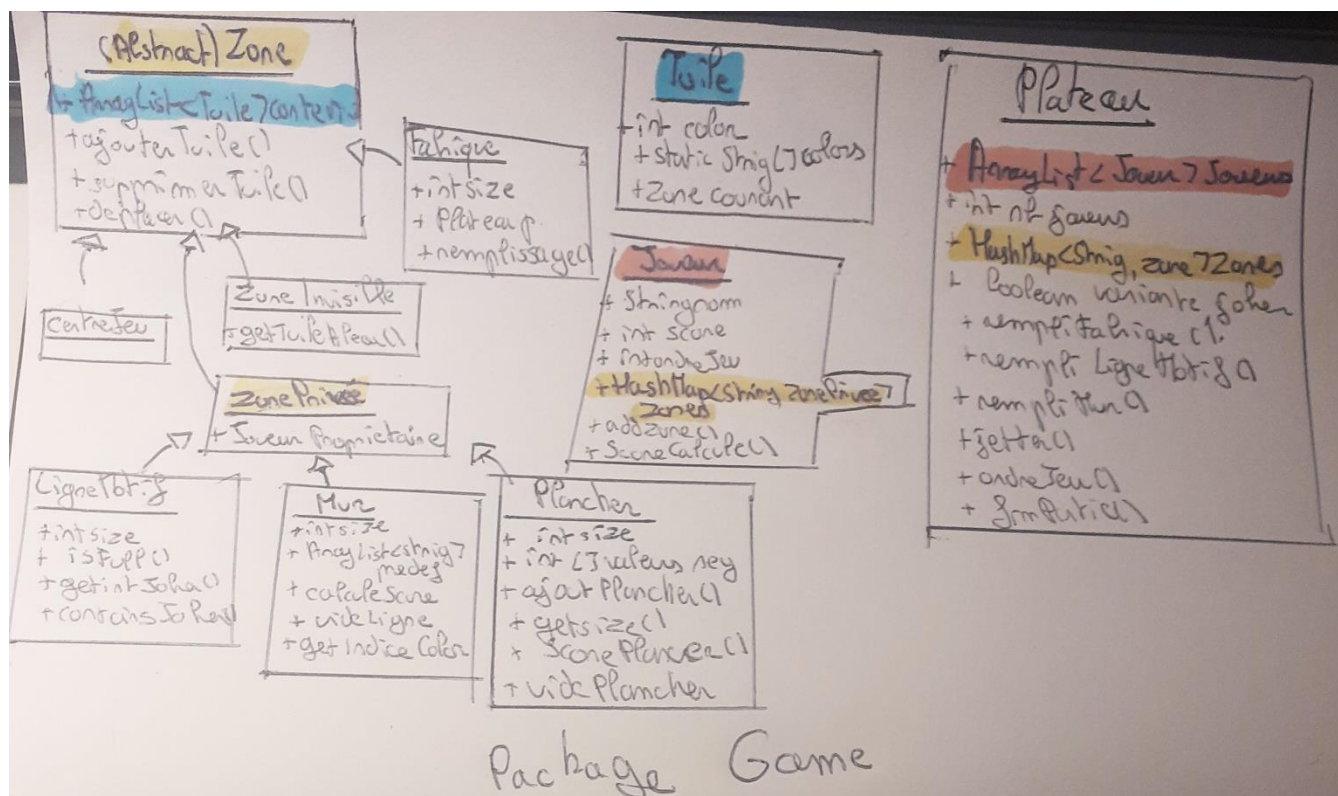 (Abstract) Zone
+ ArrayList<Tuile> conten
+ajouterTuile()
+supprimerTuile()
+deplacer()
Fabrique
+int size
+ Plateau p
+remplissage()
CentreJeu
Zone Invisible
+getTuileAleau()
ZonePrivée
+ Joueur Proprietaire
LigneMotif
+int size
+ isFull()
+getintJoker()
+containsJoker
Mur
+int size
+ ArrayList<String>
+calculeScore
+ videLigne
+getIndiceColor
Plancher
+ int size
+ int [] valeurs neg
+ajoutPlancher()
+ getsize()
+ ScorePlancher()
+ videPlancher
Tuile
+int color
+static String[] colors
+Zone courant
Joueur
+ String nom
+ int score
+ int ordreJeu
+HashMap<String, ZonePrivee>
zones
+addzone()
+ ScoreCalcule()
Plateau
+ ArrayList<Joueur> Joueurs
+int nb joueurs
+ HashMap<String, zone> Zones
+ boolean variante joker
+rempliFabrique()
+rempli LigneMotif()
+ rempliMur()
+jetter()
+ ordreJeu()
+ finPartie()
Package Game